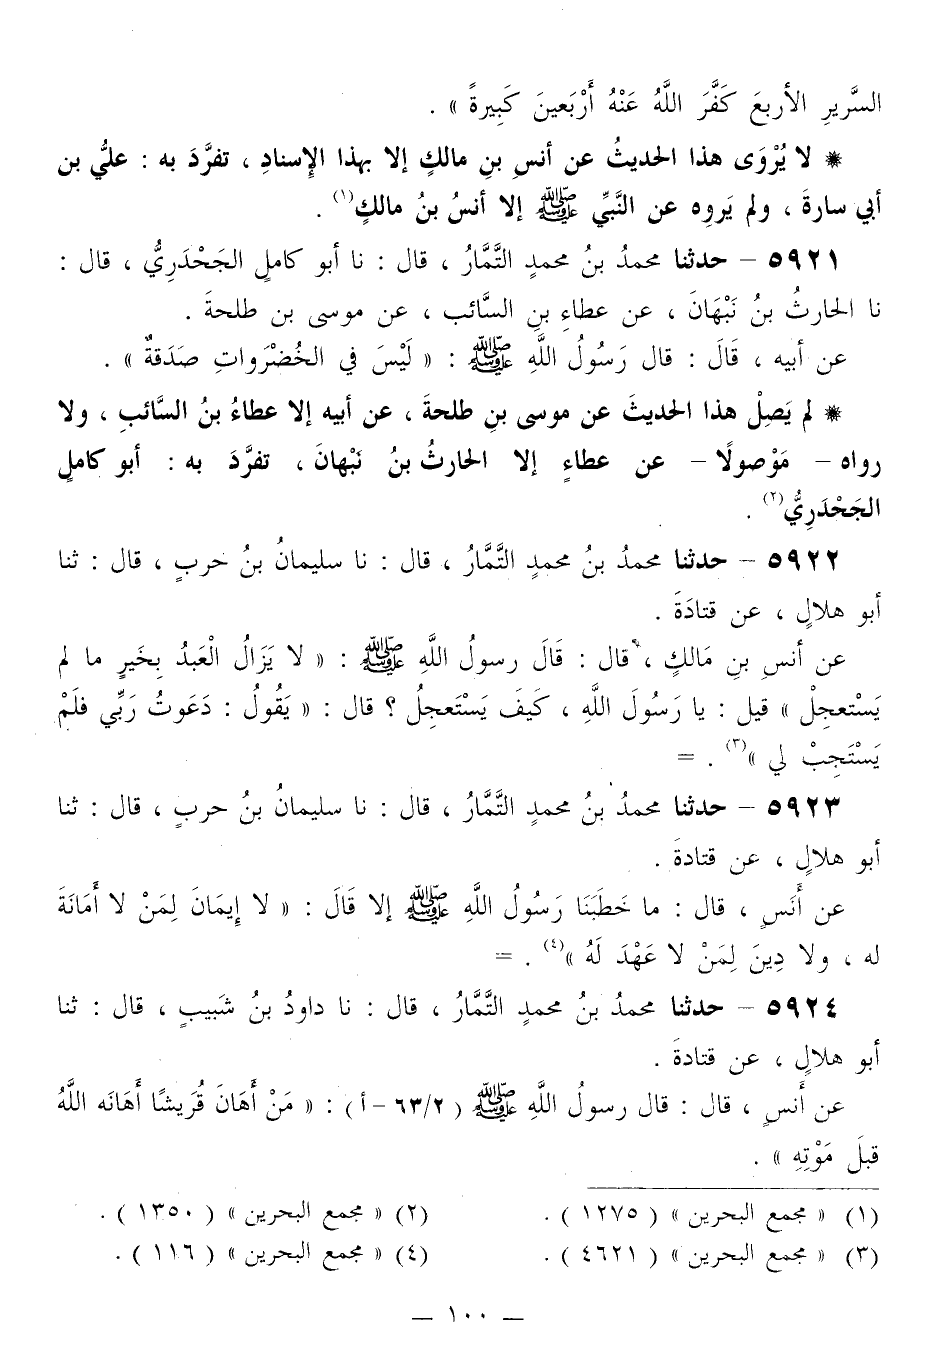 السَّريرِ الأربعَ كَفَّرَ اللَّهُ عَنْهُ أَرْبَعينَ كَبِيرةً » .
* لا يُرْوَى هذا الحديثُ عن أنسِ بنِ مالكٍ إلا بهذا الإِسنادِ ، تفرَّدَ به : عليُّ بن
أبي سارةَ ، ولم يَروِه عن النَّبِّي ﷺ إلا أنسُ بنُ مالكٍ(١) .
٥٩٢١ – حدثنا محمدُ بنُ محمدٍ التَّمَّارُ ، قال : نا أبو كاملٍ الجَحْدَرِيُّ ، قال :
نا الحارثُ بنُ نَبْهَانَ ، عن عطاءِ بنِ السَّائب ، عن موسى بن طلحةَ .
عن أبيه ، قَالَ : قال رَسُولُ اللَّهِ ﷺ : « لَيْسَ في الخُضْرَواتِ صَدَقةٌ » .
* لم يَصِلْ هذا الحديثَ عن موسى بن طلحةَ ، عن أبيه إلا عطاءُ بنُ السَّائبِ ، ولا
رواه – مَوْصولًا – عن عطاءٍ إلا الحارثُ بنُ نَبْهانَ ، تفرَّدَ به : أبو كاملٍ
الجَحْدَرِيُّ(٢) .
٥٩٢٢ – حدثنا محمدُ بنُ محمدٍ التَّمَّارُ ، قال : نا سليمانُ بنُ حربٍ ، قال : ثنا
أبو هلالٍ ، عن قتادَةَ .
عن أنسِ بنِ مَالكٍ ، قال : قَالَ رسولُ اللَّهِ ﷺ : « لا يَزَالُ الْعَبدُ بِخَيرٍ ما لم
يَسْتعجِلْ » قيل : يا رَسُولَ اللَّهِ ، كَيفَ يَسْتَعجلُ ؟ قال : « يَقُولُ : دَعَوتُ رَبِّي فلَمْ
يَسْتَجِبْ لي »(٣) . =
٥٩٢٣ – حدثنا محمدُ بنُ محمدٍ التَّمَّارُ ، قال : نا سليمانُ بنُ حربٍ ، قال : ثنا
أبو هلالٍ ، عن قتادةَ .
عن أَنَسٍ ، قال : ما خَطَبَنَا رَسُولُ اللَّهِ ﷺ إلا قَالَ : « لا إِيمَانَ لِمَنْ لا أَمَانَةَ
له ، ولا دِينَ لِمَنْ لا عَهْدَ لَهُ »(٤) . =
٥٩٢٤ – حدثنا محمدُ بنُ محمدٍ التَّمَّارُ ، قال : نا داودُ بنُ شَبيبٍ ، قال : ثنا
أبو هلالٍ ، عن قتادةَ .
عن أَنسٍ ، قال : قال رسولُ اللَّهِ ﷺ ( ٦٣/٢ – أ ) : « مَنْ أَهَانَ قُرَيشًا أَهَانَه اللَّهُ
قبلَ مَوْتِهِ » .
(١) « مجمع البحرين » ( ١٢٧٥ ) .
(٢) « مجمع البحرين » ( ١٣٥٠ ) .
(٣) « مجمع البحرين » ( ٤٦٢١ ) .
(٤) « مجمع البحرين » ( ١١٦ ) .
– ١٠٠ –